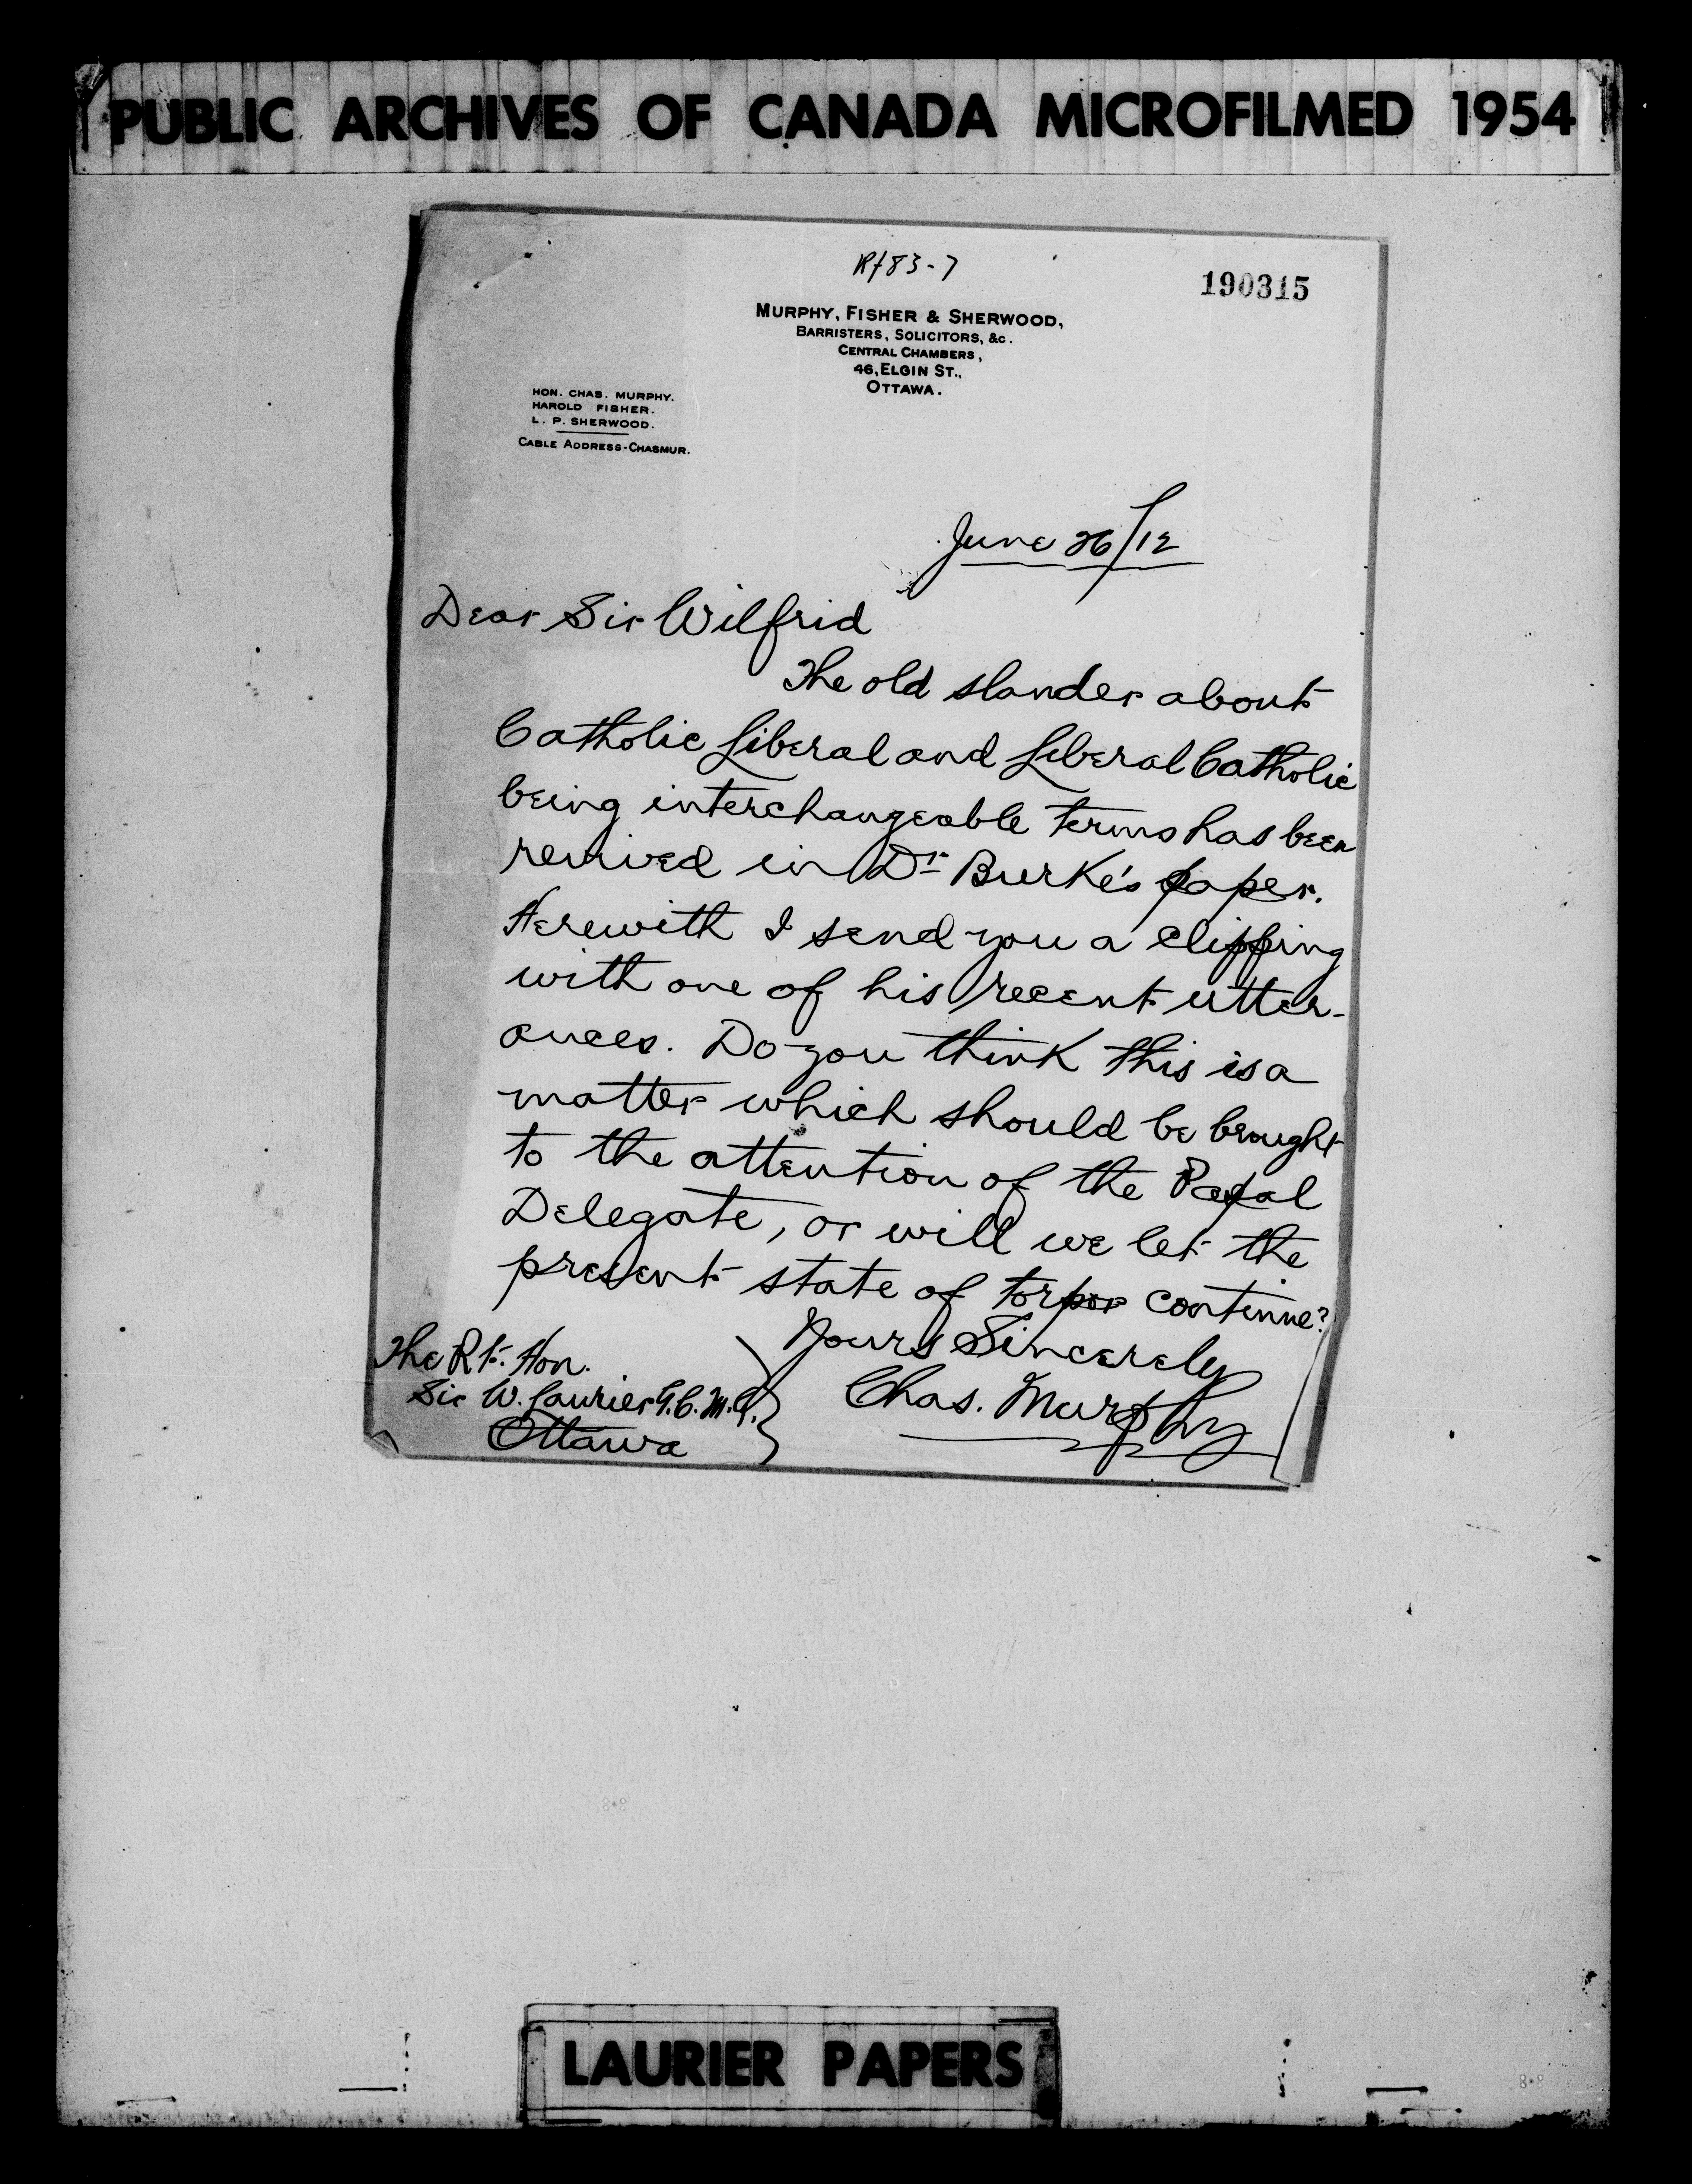 PUBLIC ARCHIVES OF CANADA MICROFILMED 1954
Rf83-7
190315
MURPHY, FISHER & SHERWOOD,
BARRISTERS, SOLICITORS, &c.
CENTRAL CHAMBERS,
46, ELGIN ST.,
OTTAWA.
HON. CHAS. MURPHY.
HAROLD FISHER.
L. P. SHERWOOD.
CABLE ADDRESS-CHASMUR.
June 26/12
Dear Sir Wilfrid
The old slander about
Catholic Liberal and Liberal Catholic
being interchangeable terms has been
revived in Dr Burke's paper.
Herewith I send you a clipping
with one of his recent utter-
ances. Do you think this is a
matter which should be brought
to the attention of the Papal
Delegate, or will we let the
present state of torpor continue?
Yours Sincerely
Chas. Murphy
The Rt. Hon.
Sir W. Laurier G.C.M.G.
Ottawa
LAURIER PAPERS